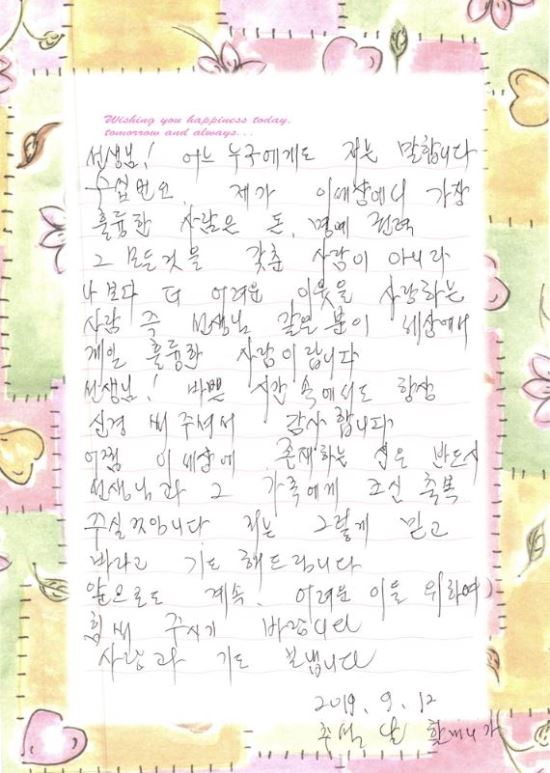 Wishing you happiness today,
tomorrow and always...
선생님! 어느 누구에게도 저는 말합니다
제가 이세상에서 가장
훌륭한 사람은 돈, 명예 권력
그 모든것을 갖춘 사람이 아니라
나보다 더 어려운 이웃을 사랑하는
사람 즉 선생님 같은 분이 세상에서
제일 훌륭한 사람이랍니다
선생님! 바쁜 시간 속에서도 항상
신경 써 주셔서 감사합니다
이 세상에 존재하는 신은 반드시
선생님과 그 가족에게 축복
주실것입니다 저는 그렇게 믿고
바라고 기도 해드립니다
앞으로도 계속, 어려운 이을 위하여
힘써 주시기 바랍니다
사랑과 기도 보냅니다
2019. 9. 12
할머니가